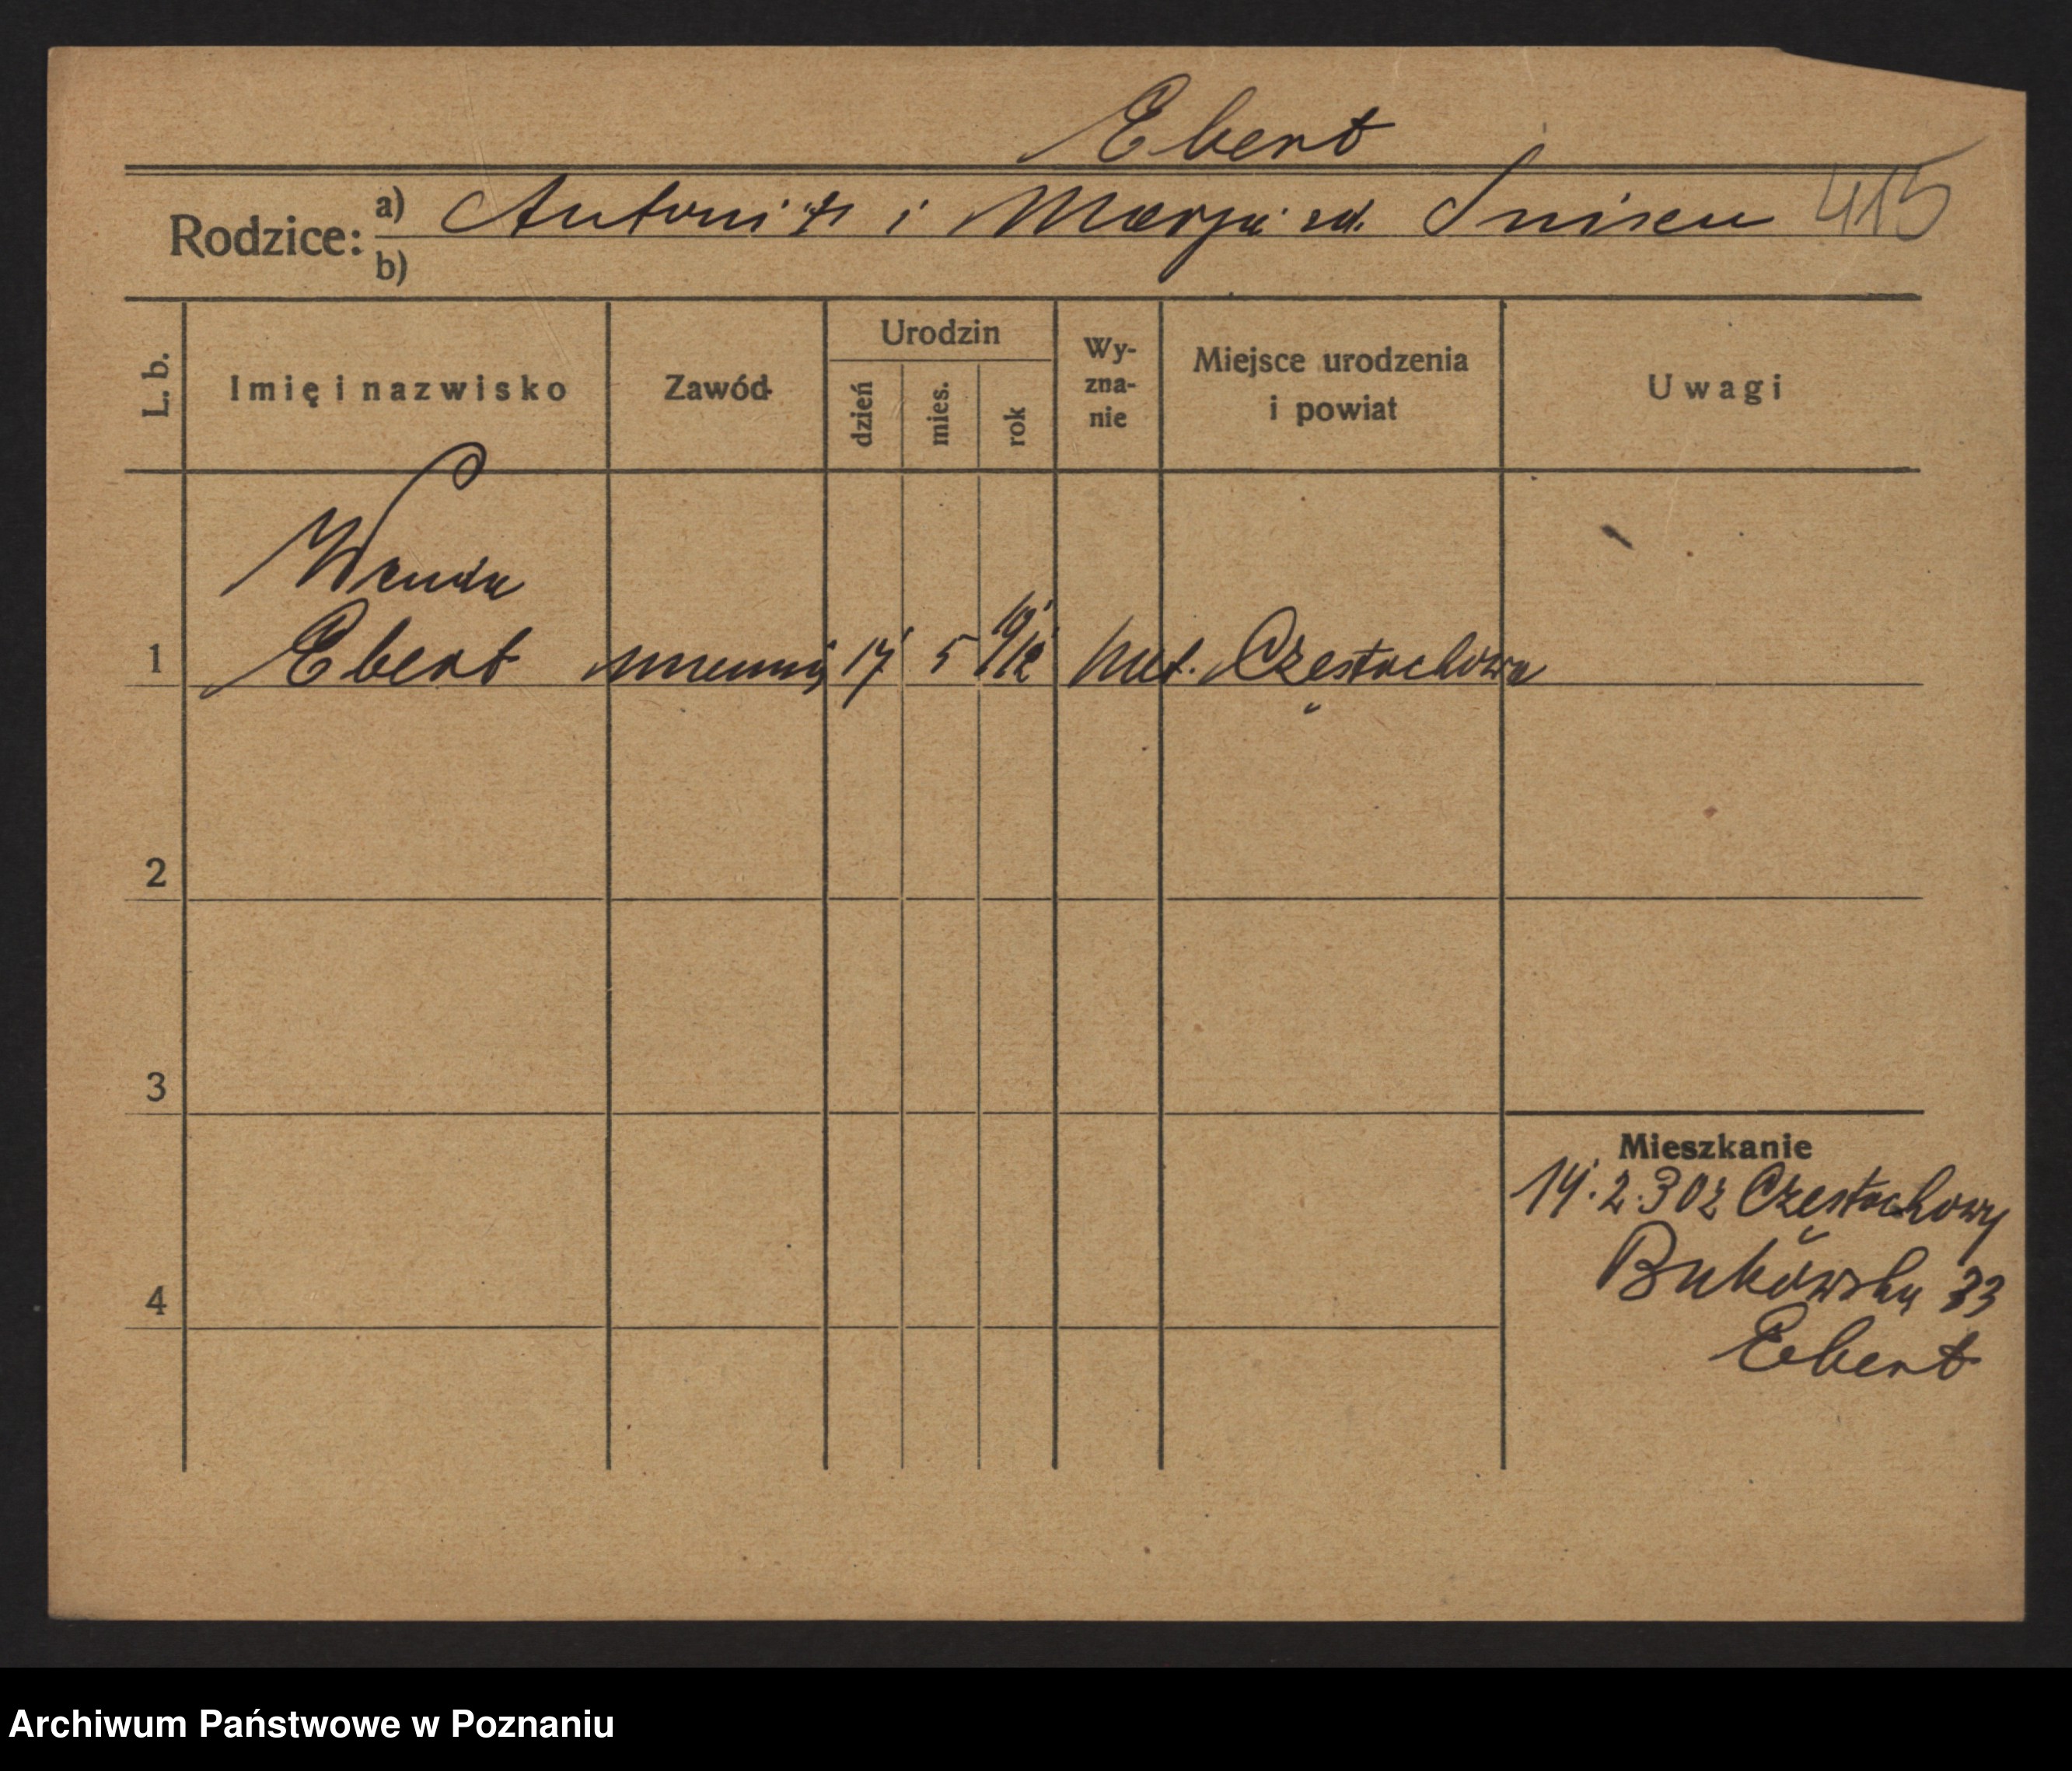 Ebert
Rodzice: a) Antoni i Marja zd. 415
b)
L. b. Imię i nazwisko Zawód Urodzin dzień mies. rok Wy-zna-nie Miejsce urodzenia i powiat Uwagi
Wanda
1 Ebert 17 5 kat. Częstochowa
2
3
Mieszkanie
14.2.30 z Częstochowy
4 Bukowska 33
Ebert
Archiwum Państwowe w Poznaniu